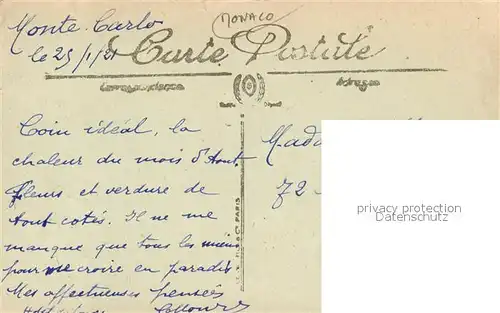 Monte-Carlo
MONACO
le 25/1/21
Carte Postale
Correspondance
Adresse
Coin idéal, la
chaleur du mois d'Aout
fleurs et verdure de
tout cotés. Il ne me
manque que tous les miens
pour me croire en paradis
Mes affectueuses pensées
Mada
72
PARIS
privacy protection
Datenschutz